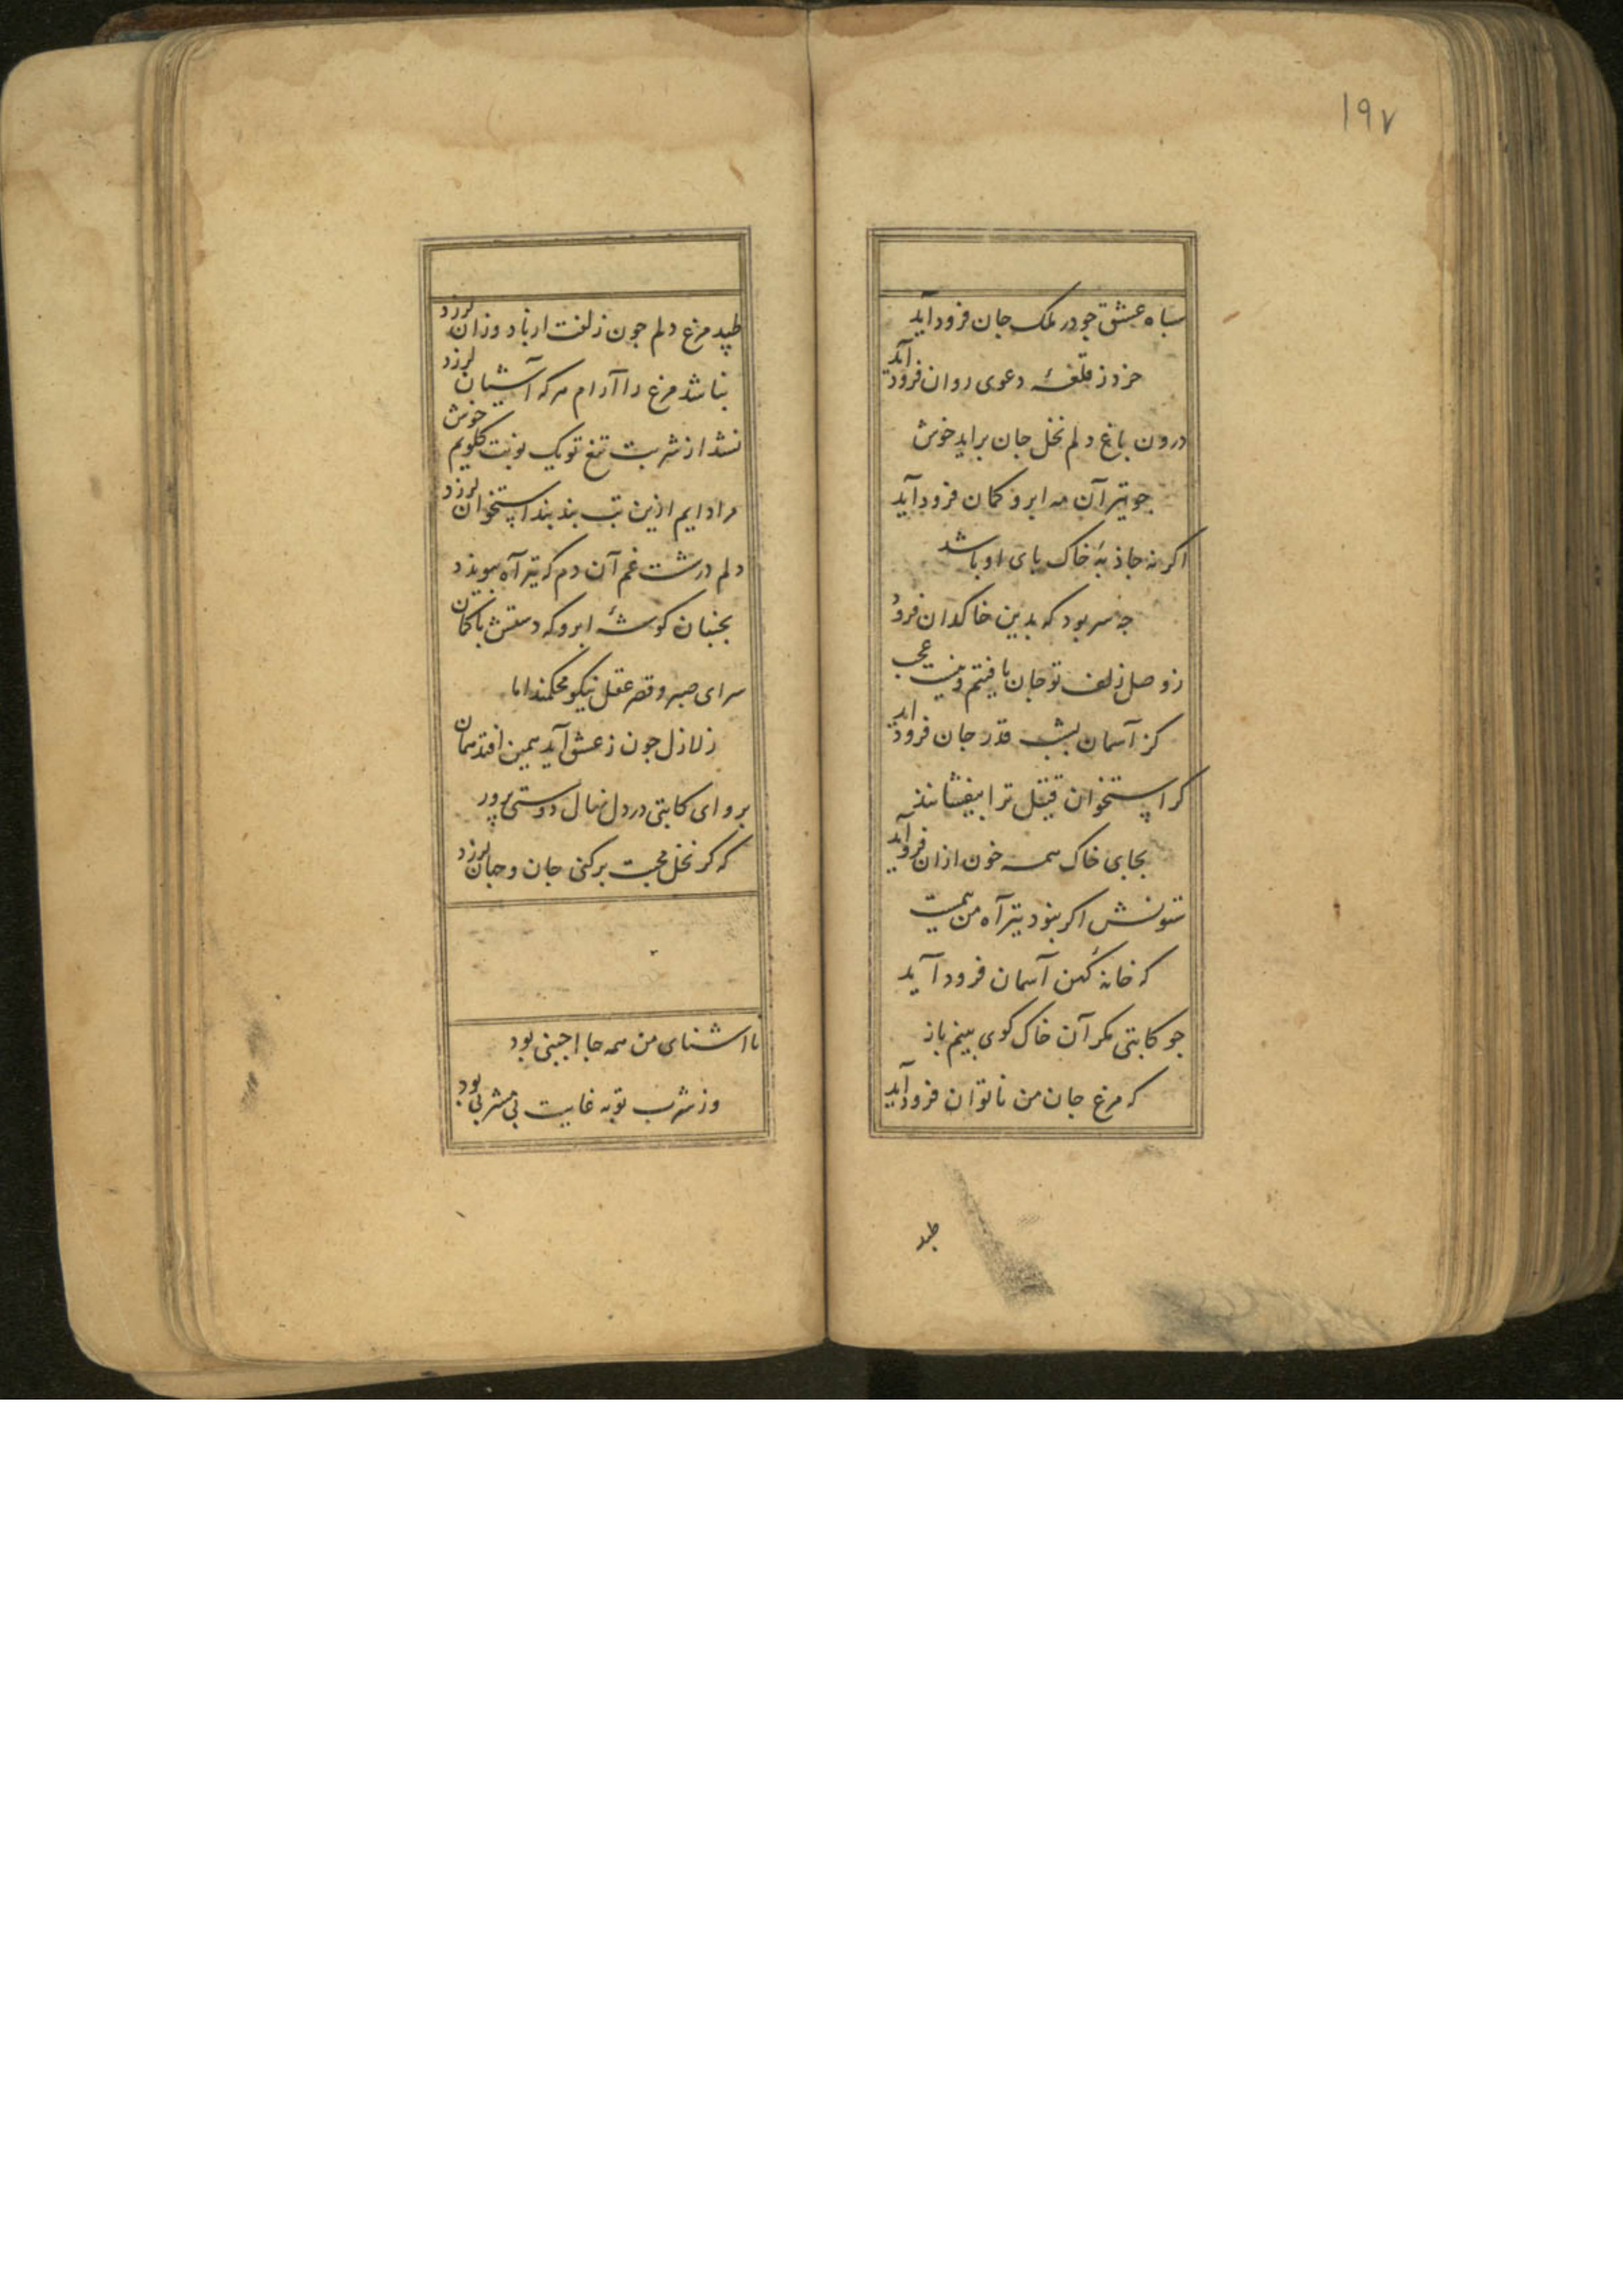 ۱۹۷
سباه عشق جو در ملک جان فرود آید
خرد ز قلغهٔ دعوی روان فرود آید
درون باغ دلم نخل جان براید خوش
جو تیر آن مه ابرو کمان فرود آید
اکر نه جاذبهٔ خاک بای او باشد
جه سر بود که بدین خاکدان فرود
ز وصل زلف تو جان یافتیم و نیست عجب
کز آسمان بشب قدر جان فرود اید
کر استخوان قتیل ترا بیفشانند
بجای خاک همه خون ازان فرود آید
ستونش اکر نبود تیر آه من
که خانهٔ کهن آسمان فرود آید
جو کاتبی مکر آن خاک کوی بینم باز
که مرغ جان من ناتوان فرود آید
طبد
طپد مرغ دلم جون زلفت از باد وزان لرزد
نباشد مرغ را آرام هر که آشیان لرزد
نشد از شربت تیغ تو یک نوبت کلویم خوش
مرا دایم ازین تب بند بند استخوان لرزد
دلم در شست غم آن دم که تیر آه بیوندد
بجنبان کوشهٔ ابرو که دستش با کمان
سرای صبر و قصر عقل نیکو محکمند اما
زلازل جون ز عشق آید همین افتد همان
برو ای کاتبی در دل نهال دوستی پرور
که کر نخل محبت برکنی جان و جهان لرزد
نا اشنای من همه جا اجنبی بود
وز شرب توبه غایت بی مشربی بود